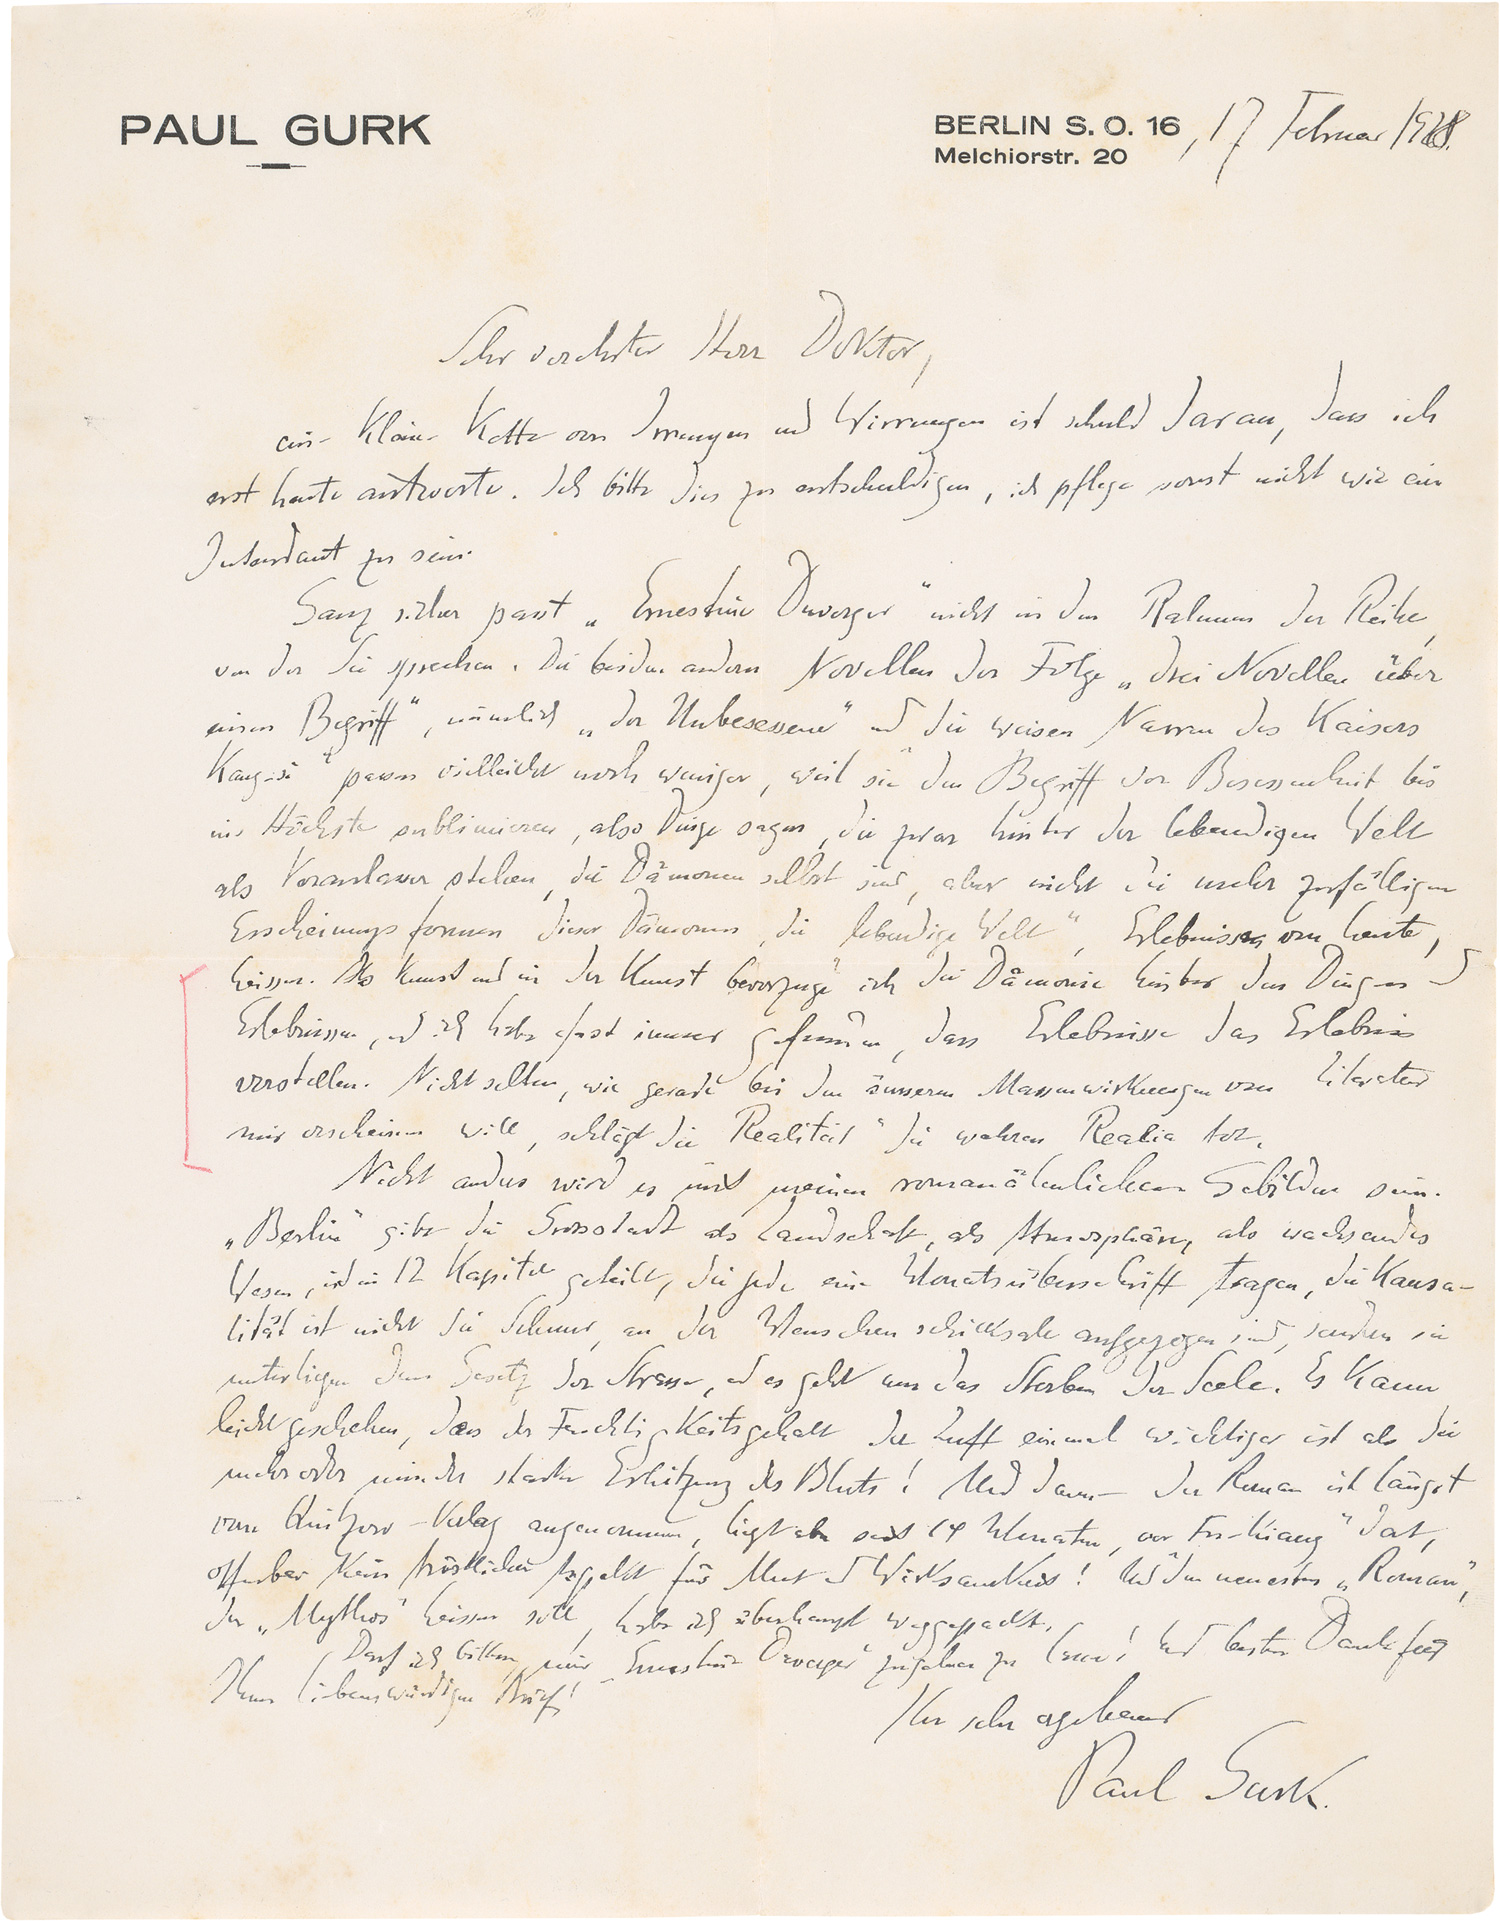 PAUL GURK
BERLIN S. O. 16, 17 Februar 1928.
Melchiorstr. 20
Sehr verehrter Herr Doktor,
eine kleine Kette von Irrungen und Wirrungen ist schuld daran, dass ich
erst heute antworte. Ich bitte dies zu entschuldigen, ich pflege sonst nicht wie ein
Intendant zu sein.
Ganz sicher passt „Ernestine Duverger“ nicht in den Rahmen der Reihe,
von der Sie sprechen. Die beiden andern Novellen der Folge „drei Novellen über
einen Begriff“, nämlich „der Unbesessene“ und die weisen Narren des Kaisers
Kang-si“ passen vielleicht noch weniger, weil sie den Begriff der Besessenheit bis
ins Höchste sublimieren, also Dinge sagen, die zwar hinter der lebendigen Welt
als Veranlasser stehen, die Dämonen selbst sind, aber nicht die mehr zufälligen
Erscheinungsformen dieser Dämonen, die „lebendige Welt“, Erlebnisse von heute,
heissen. Als Kunst und in der Kunst bevorzuge ich die Dämonie hinter den Dingen und
Erlebnissen, und ich habe fast immer gefunden, dass Erlebnisse das Erlebnis
verstellen. Nicht selten, wie gerade bei den äusseren Massenwirkungen von Literatur
mir erscheinen will, schlägt die „Realität“ die wahren Realia tot.
Nicht anders wird es mit meinen romanähnlichen Gebilden sein.
„Berlin“ gibt die Grossstadt als Landschaft, als Atmosphäre, als wachsendes
Wesen, ist in 12 Kapitel geteilt, die jede eine Monatsüberschrift tragen, die Kausa-
lität ist nicht die Schnur, an der Menschenschicksale aufgezogen sind, sondern sie
unterliegen dem Gesetz der Strasse, und es geht um das Sterben der Seele. Es kann
leicht geschehen, dass der Feuchtigkeitsgehalt der Luft einmal wichtiger ist als die
mehr oder minder starke Erhitzung des Bluts! Und dann – der Roman ist längst
vom Lintzow-Verlag angenommen, liegt aber seit 14 Monaten, vor „Fu-Kiang“ dat,
offenbar kein tröstlicher Aspekt für Mut und Wirksamkeit! Und den neuesten „Roman“,
der „Mythos“ heissen soll, habe ich überhaupt weggepackt.
Darf ich bitten, mir „Ernestine Duverger“ zugehen zu lassen! Und besten Dank für
Ihren liebenswürdigen Brief!
Ihr sehr ergebener
Paul Gurk.